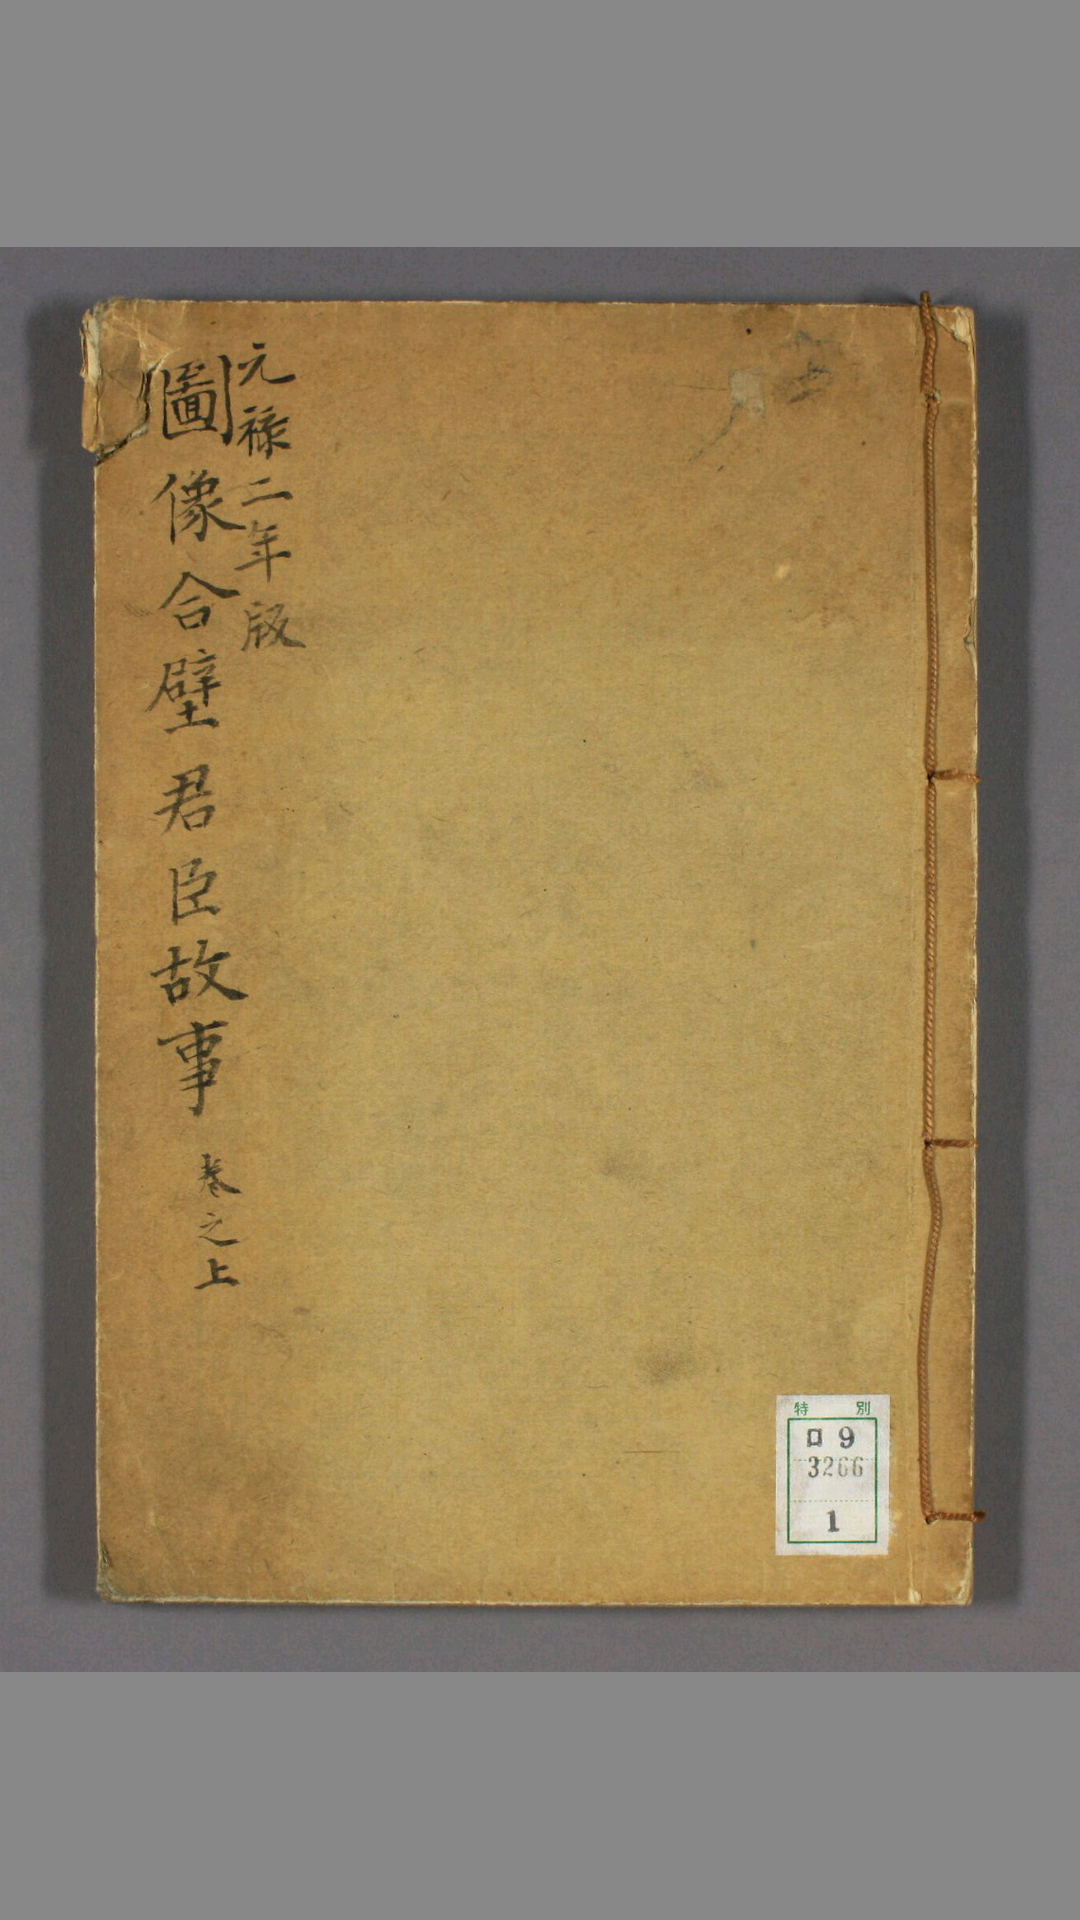 元禄二年版
圖像合壁君臣故事
巻之上
特別
ロ9
3266
1